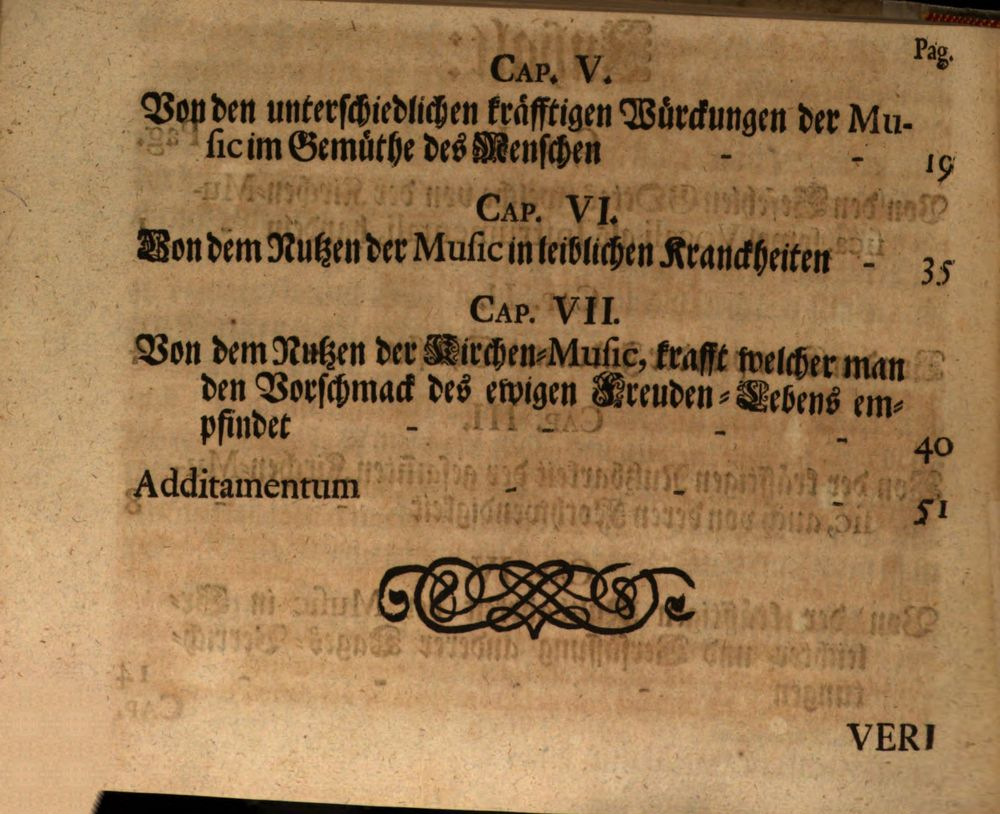 Pag.
CAP. V.
Von den unterschiedlichen kräfftigen Würckungen der Mu-
sic im Gemüthe des Menschen - - 19
CAP. VI.
Von dem Nutzen der Music in leiblichen Kranckheiten - 35
CAP. VII.
Von dem Nutzen der Kirchen-Music, krafft welcher man
den Vorschmack des ewigen Freuden-Lebens em-
pfindet - - - - 40
Additamentum - - 51
VERI